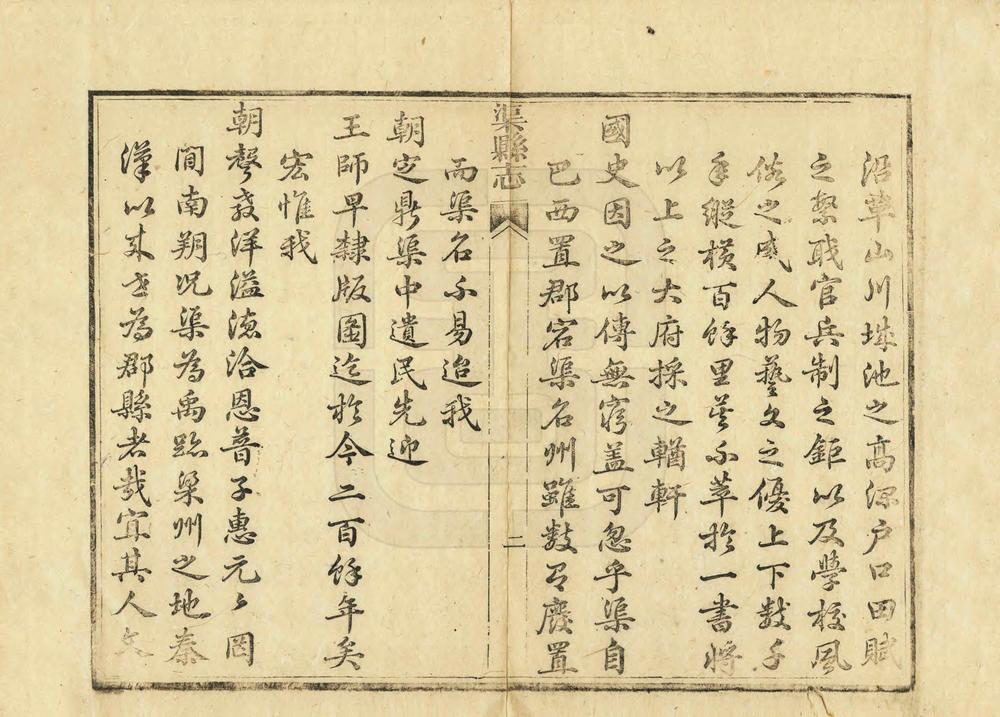 沿革山川城池之高深户口田賦
之繁職官兵制之鉅以及學校風
俗之感人物藝文之優上下數千
年縱横百餘里莫不萃於一書將
以上之大府採之輶軒
國史因之以傳無窮盖可忽乎渠自
巴西置郡宕渠名州雖數有廢置
渠縣志
二
而渠名不易迨我
朝定鼎渠中遺民先迎
王師早隸版圖迄於今二百餘年矣
宏惟我
朝聲教洋溢滂洽恩普子惠元々罔
間南朔况渠為禹跡梁州之地秦
漢以来世為郡縣者哉宜其人文